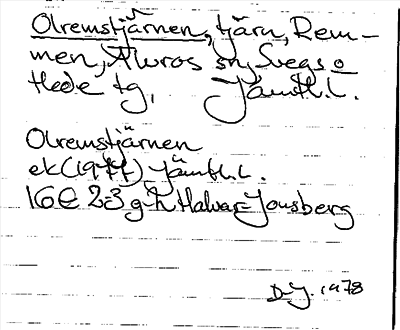 Olremstjärnen, tjärn, Rem-
men, Älvros sn, Svegs o
Hede tg, Jämtl.L.
Olremstjärnen
ek (1977) Jämtl.L.
16E 2-3 g-h Halvar Jonsberg
D-J. 1978